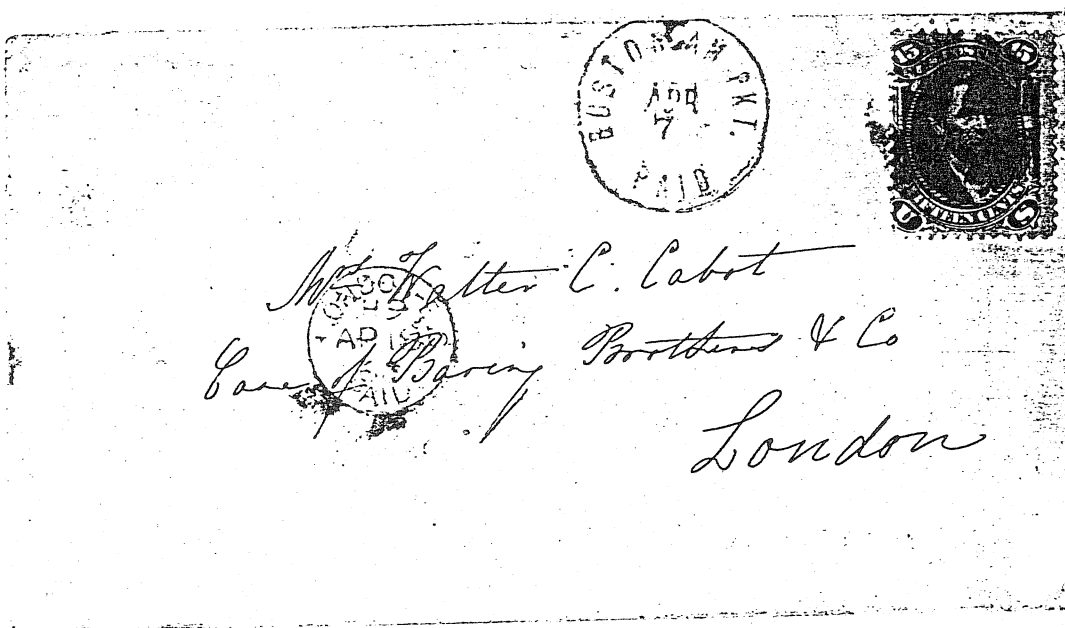 BOSTON AM. PKT.
APR
7
PAID
15 15
FIFTEEN CENTS
U S
Mrs Walter C. Cabot
Care of Baring Brothers & Co
London
LONDON
AP
PAID